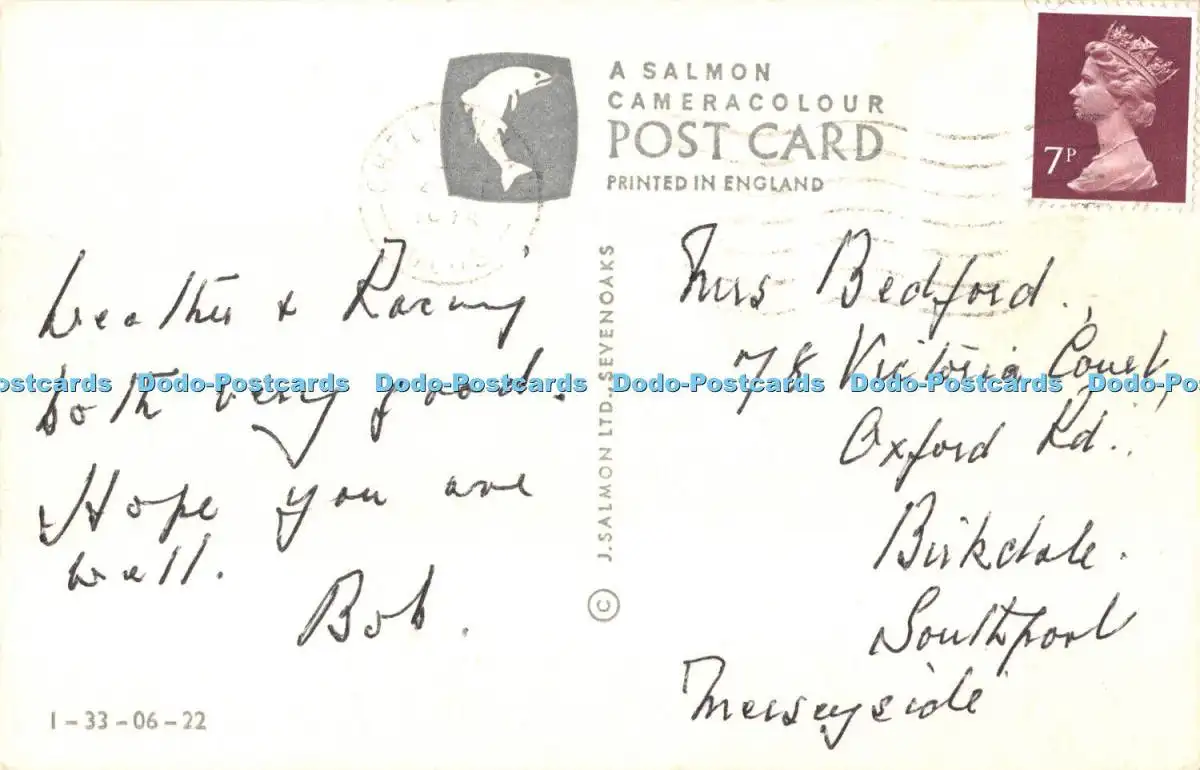 A SALMON
CAMERACOLOUR
POST CARD
PRINTED IN ENGLAND
7P
Weather & Racing
both very good.
Hope you are
well.
Bob.
J. SALMON LTD. SEVENOAKS ©
Mrs Bedford.,
78 Victoria Court,
Oxford Rd.,
Birkdale.
Southport
Merseyside
1-33-06-22
Dodo-Postcards Dodo-Postcards Dodo-Postcards Dodo-Postcards Dodo-Postcards Dodo-Postcards